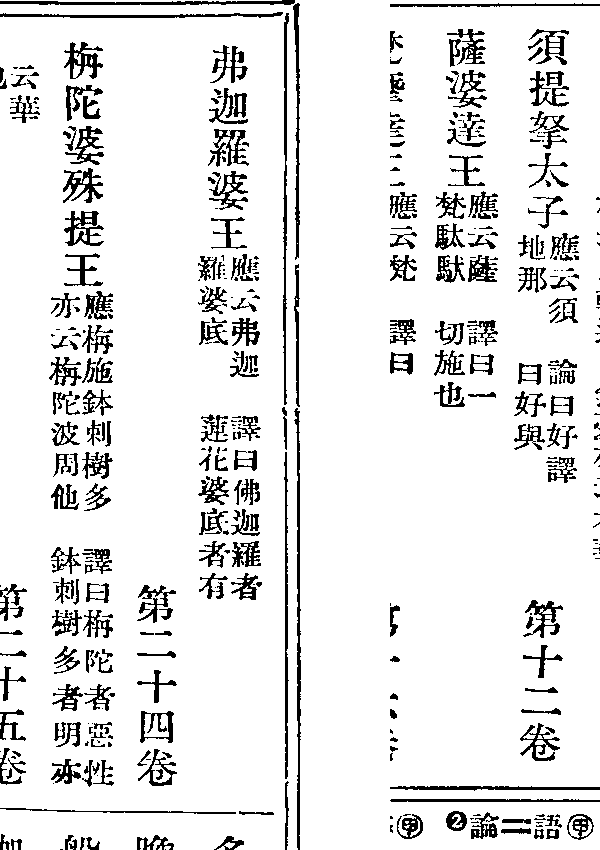 須提拏太子
應云須
地那
論曰好譯
曰好與
第十二卷
薩婆達王
應云薩
譯曰一
切施也
應云梵
譯曰
㊥語二論❷
弗迦羅婆王
應云弗迦
羅婆底
譯曰佛迦羅者
蓮花婆底者有
第二十四卷
栴陀婆殊提王
應栴施鉢刺樹多
亦云栴陀波周他
譯曰栴陀者惡性
鉢刺樹多者明亦
云華
第二十五卷